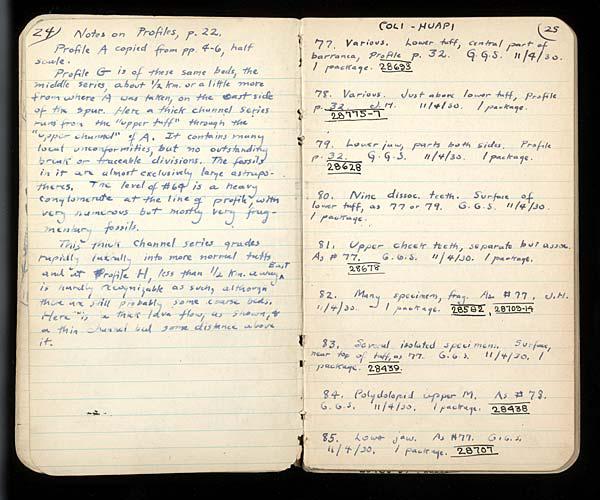 24 Notes on Profiles, p. 22.
Profile A copied from pp. 4-6, half
scale.
Profile G is of these same beds, the
middle series, about 1/2 km. or a little more
from where A was taken, on the east side
of the spur. Here a thick channel series
runs from the "upper tuff" through the
"upper channel" of A. It contains many
local unconformities, but no outstanding
break or traceable divisions. The fossils
in it are almost exclusively large astrapo-
theres. The level of #64 is a heavy
conglomerate at the line of profile, with
very numerous but mostly very frag-
mentary fossils.
This thick channel series grades
rapidly laterally into more normal tuffs
and at Profile H, less than 1/2 km. away East
is hardly recognizable as such, although
there are still probably some coarse beds.
Here is a thick lava flow, as shown, &
a thin channel but some distance above
it.
COLI-HUAPI 25
77. Various. Lower tuff, central part of
barranca, Profile p. 32. G.G.S. 11/4/30.
1 package. 28693
78. Various. Just above lower tuff, Profile
p. 32. J.H. 11/4/30. 1 package.
28775-7
79. Lower jaw, parts both sides. Profile
p. 32. G.G.S. 11/4/30. 1 package.
28628
80. Nine dissoc. teeth. Surface of
lower tuff, as 77 or 79. G.G.S. 11/4/30.
1 package.
81. Upper cheek teeth, separate but assoc.
As #77. G.G.S. 11/4/30. 1 package.
28678
82. Many specimens, frag. As #77. J.H.
11/4/30. 1 package. 28582, 28703-14
83. Several isolated specimens. Surface,
near top of tuff, as 77. G.G.S. 11/4/30. 1
package. 28439.
84. Polydolopid upper M. As #78.
G.G.S. 11/4/30. 1 package. 28438
85. Lower jaw. As #77. G.G.S.
11/4/30. 1 package. 28707